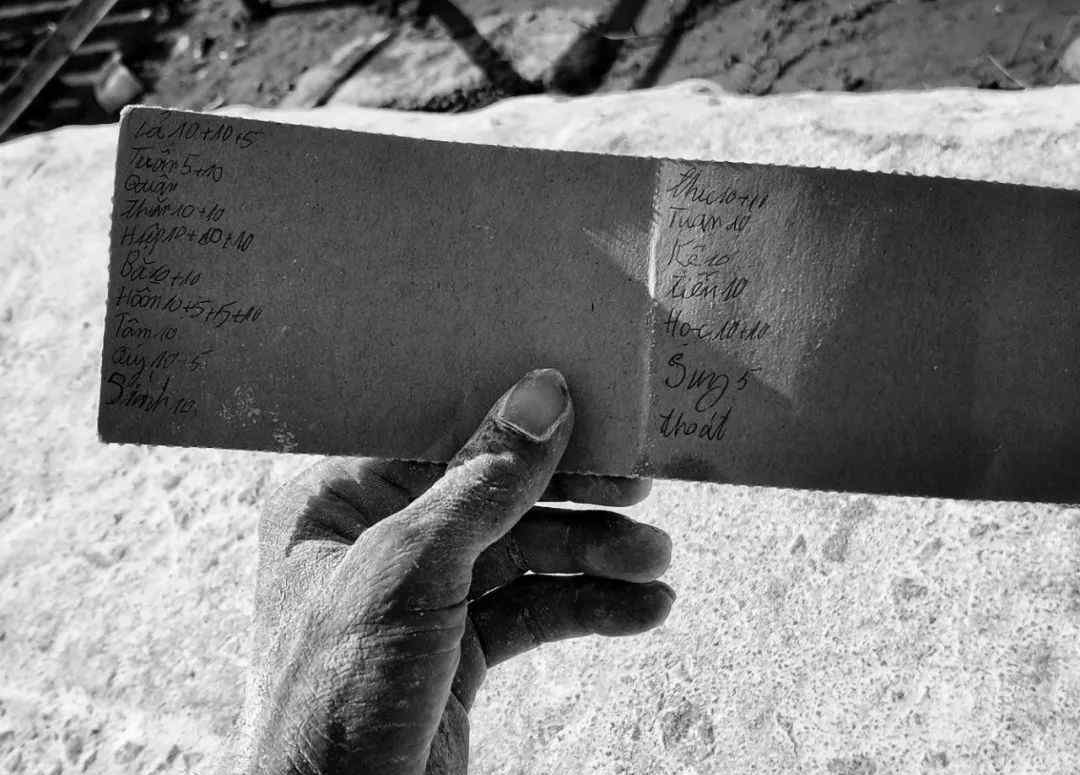 Lả 10+10+5
Tuân 5+10
Quân
Thìn 10+10
Hiệp 10+10+10
Bắc 10+10
Hoôn 10+5+5+10
Tâm 10
Quý 10+5
Sinh 10
thuc 10+10
Tuan 10
Kê 10
tiến 10
Học 10+10
Sung 5
thoat